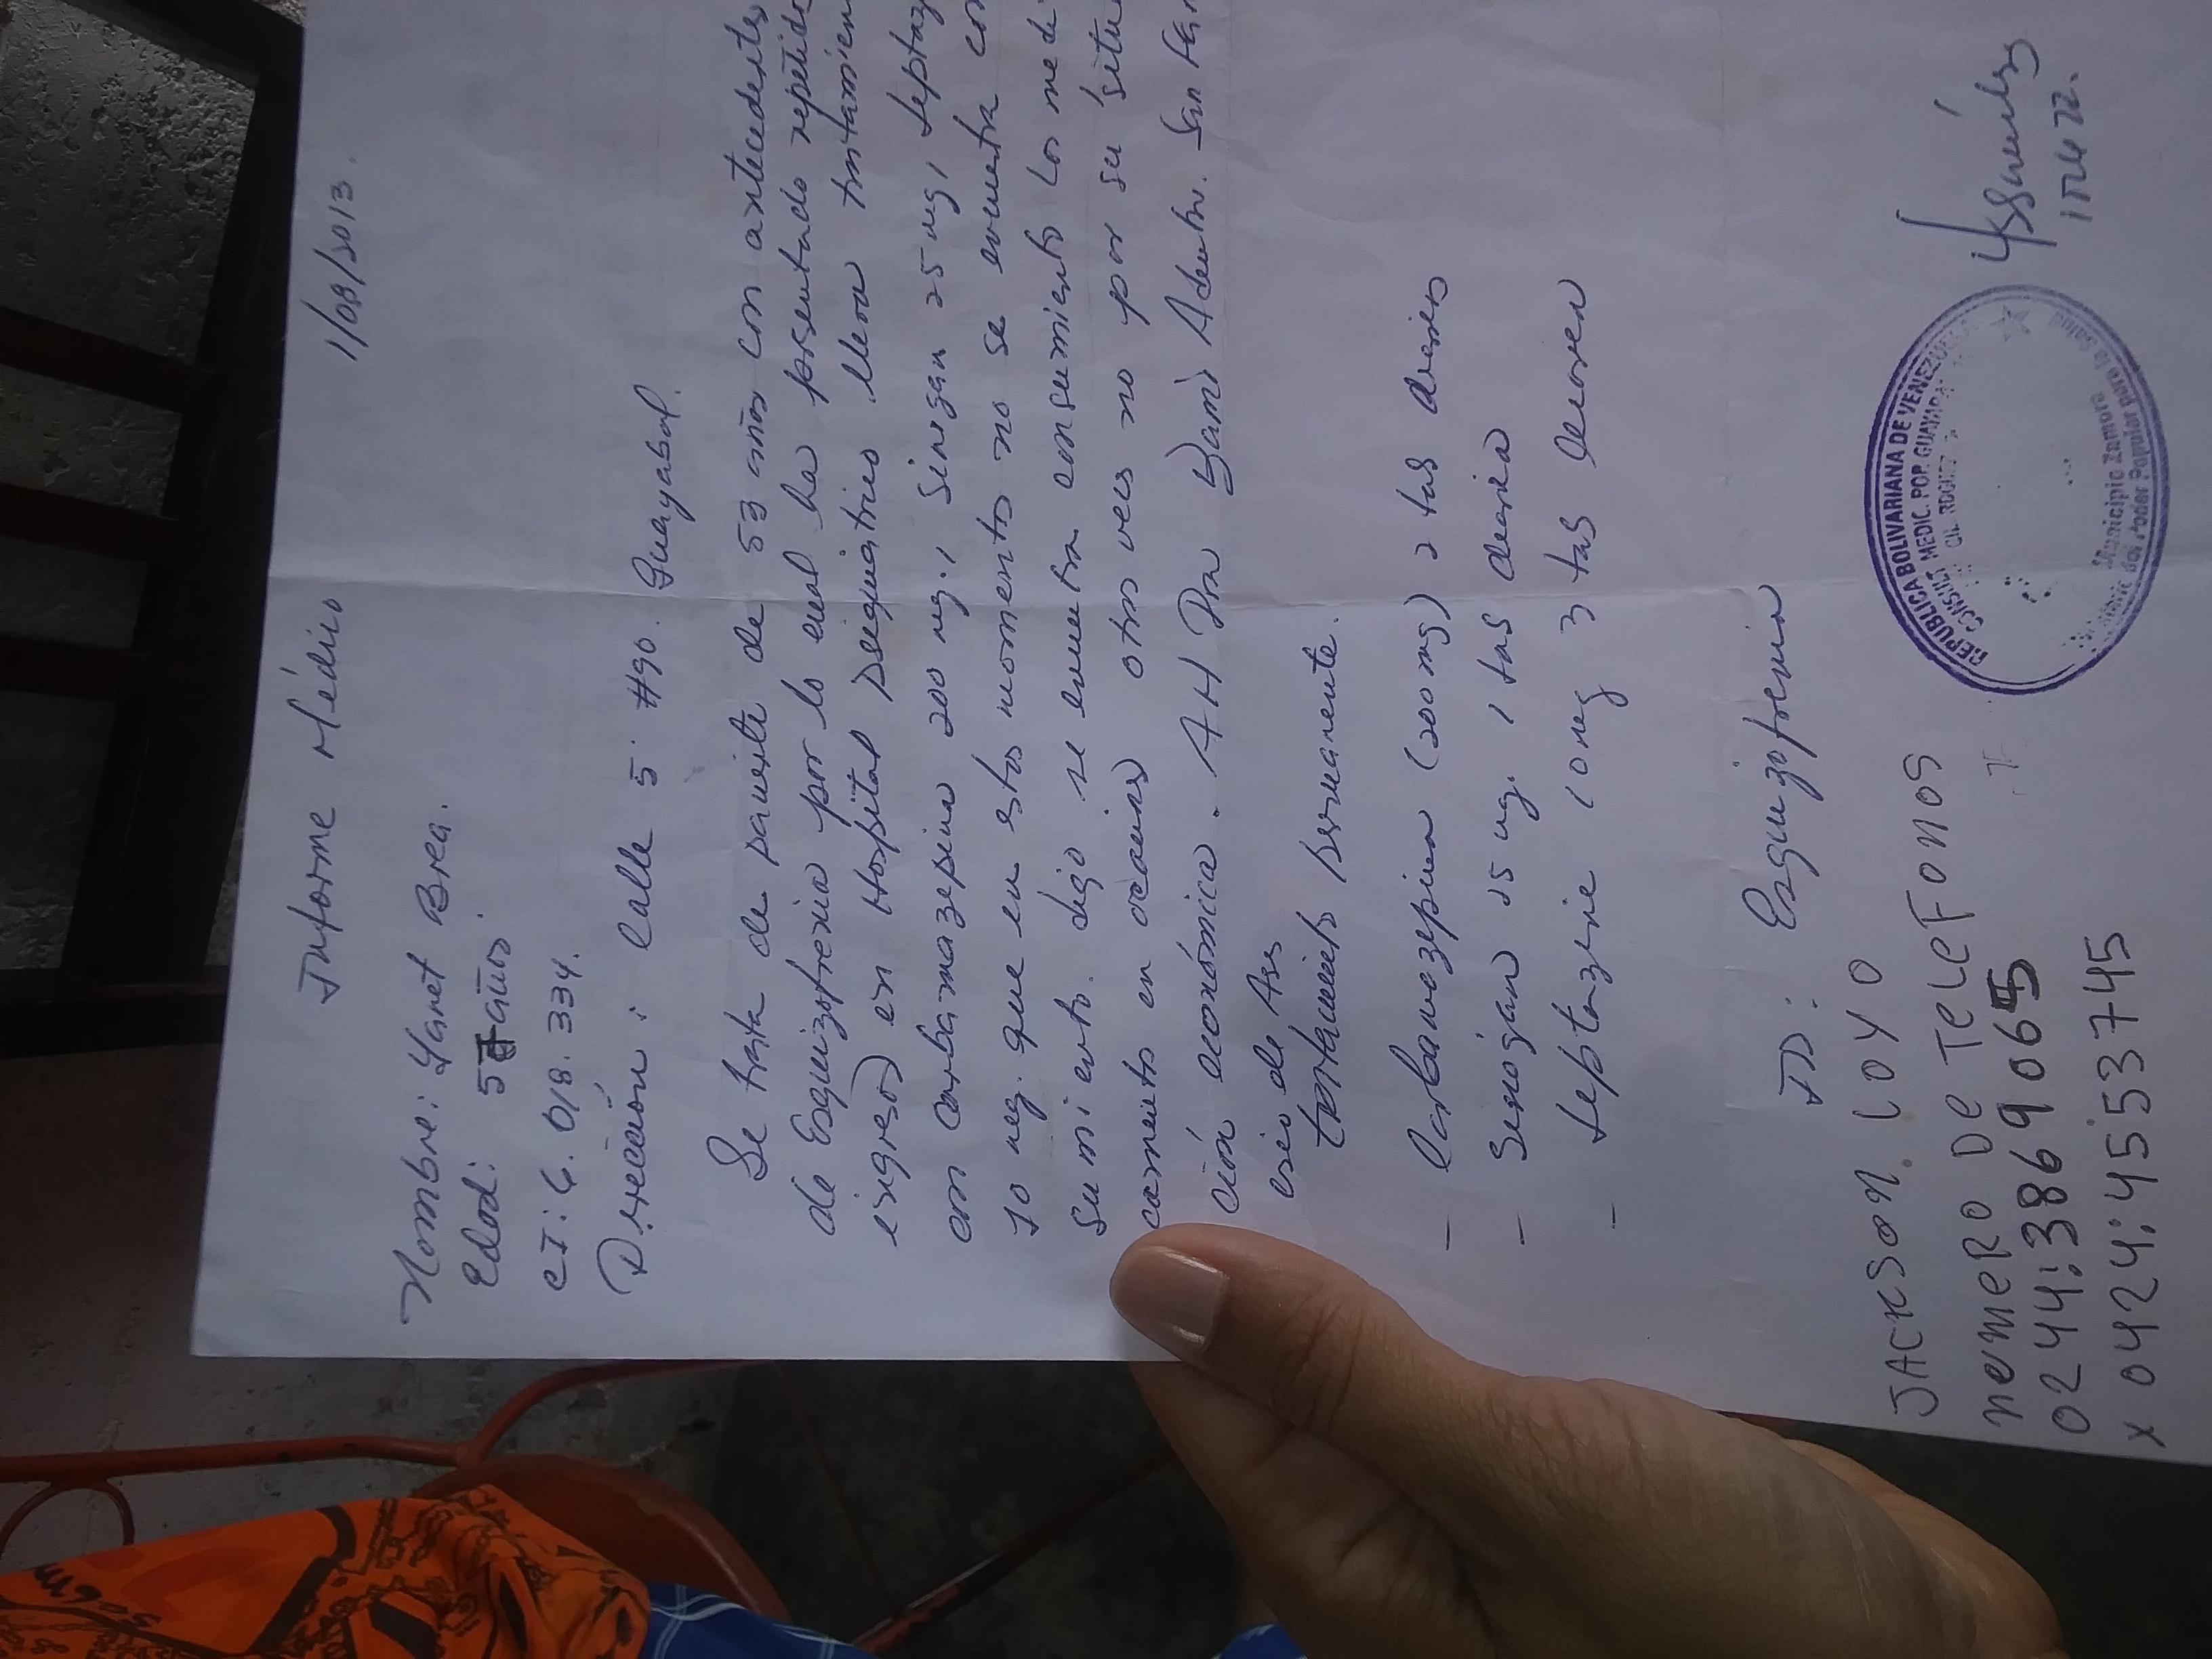 Informe Médico 1/08/2013.
Nombre: Yanet Brea.
Edad: 57 años.
CI: 6.018.334.
Dirección: Calle 5. #90. Guayabal.
Se trata de paciente de 53 años con antecedentes
de Esquizofrenia por lo cual ha presentado repetido
ingresos en Hospital Psiquiatrico lleva tratamien
con Carbamazepina 200 mg., Sinogan 25 mg, Leptaz
10 mg. que en estos momentos no se encuentra con
sumiento. digo se encuentra consumiento los medi
camento en ocaciones otras veces no por su situa
ción económica. AH Dra Yami Adentro. San
tratamiento permanente.
- Carbamazepina (200 mg) 2 tab diarias
- Sinogan 25 mg. 1 tab diaria
- Leptazine 10 mg 3 tab
ID: Esquizofrenia
JACKSON LOYO
nemeRO De TeLeFonos
0244:3869065
x 0424:4553745
REPUBLICA BOLIVARIANA DE VENEZUELA
MEDIC. POP. GUAYABAL
Municipio Zamora
del Poder Popular para la Salud